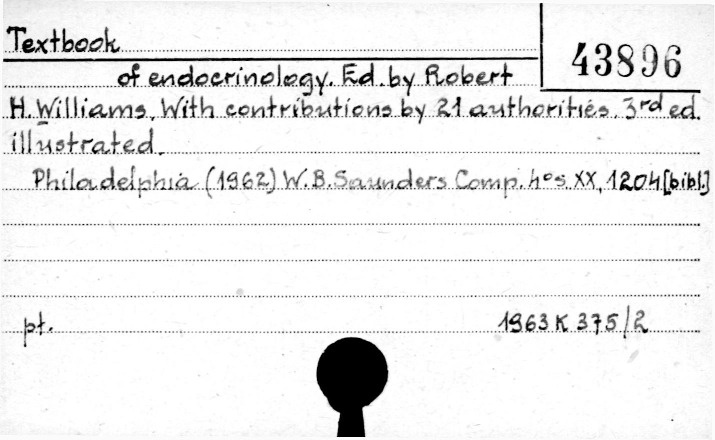 Textbook
43896
of endocrinology. Ed. by Robert
H. Williams. With contributions by 21 authorities. 3rd ed.
illustrated.
Philadelphia (1962) W.B. Saunders Comp. 4os. XX, 1204 [bibl.]
pt.
1963 K 375/2